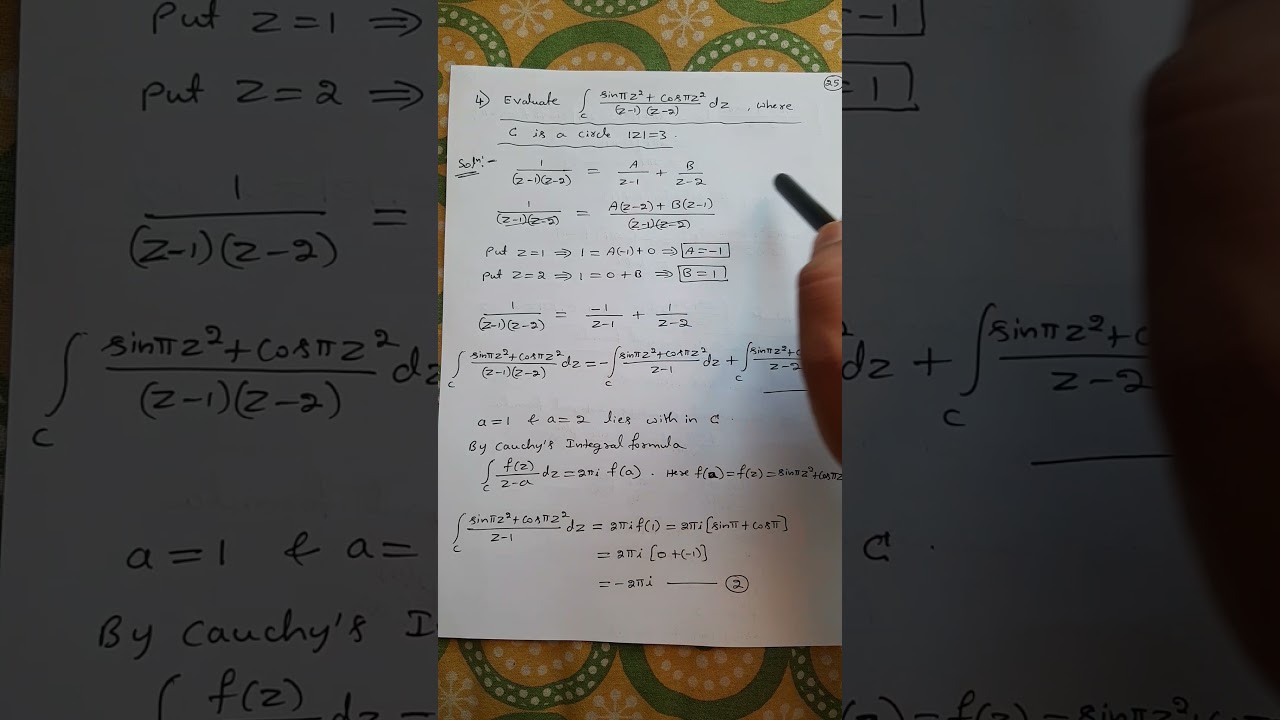 25
4) Evaluate ∫_C (sinπz²+cosπz²)/((z-1)(z-2)) dz, where
C is a circle |z|=3.
Soln:-
1/((z-1)(z-2)) = A/(z-1) + B/(z-2)
1/((z-1)(z-2)) = (A(z-2)+B(z-1))/((z-1)(z-2))
Put z=1 ⇒ 1=A(-1)+0 ⇒ A=-1
Put z=2 ⇒ 1=0+B ⇒ B=1
1/((z-1)(z-2)) = -1/(z-1) + 1/(z-2)
∫_C (sinπz²+cosπz²)/((z-1)(z-2)) dz = -∫_C (sinπz²+cosπz²)/(z-1) dz + ∫_C (sinπz²+c)/(z-2)
a=1 & a=2 lies with in C.
By Cauchy's Integral formula
∫_C f(z)/(z-a) dz = 2πi f(a). Here f(a)=f(z)=sinπz²+cosπz
∫_C (sinπz²+cosπz²)/(z-1) dz = 2πi f(1) = 2πi[sinπ+cosπ]
= 2πi [0+(-1)]
= -2πi —— 2
Put z=1 ⇒
-1
Put z=2 ⇒
1
1/((z-1)(z-2)) =
∫_C (sinπz²+cosπz²)/((z-1)(z-2)) dz
dz + ∫_C sinπz²+c/(z-2)
a=1 & a=
C.
By Cauchy's I
f(z) dz